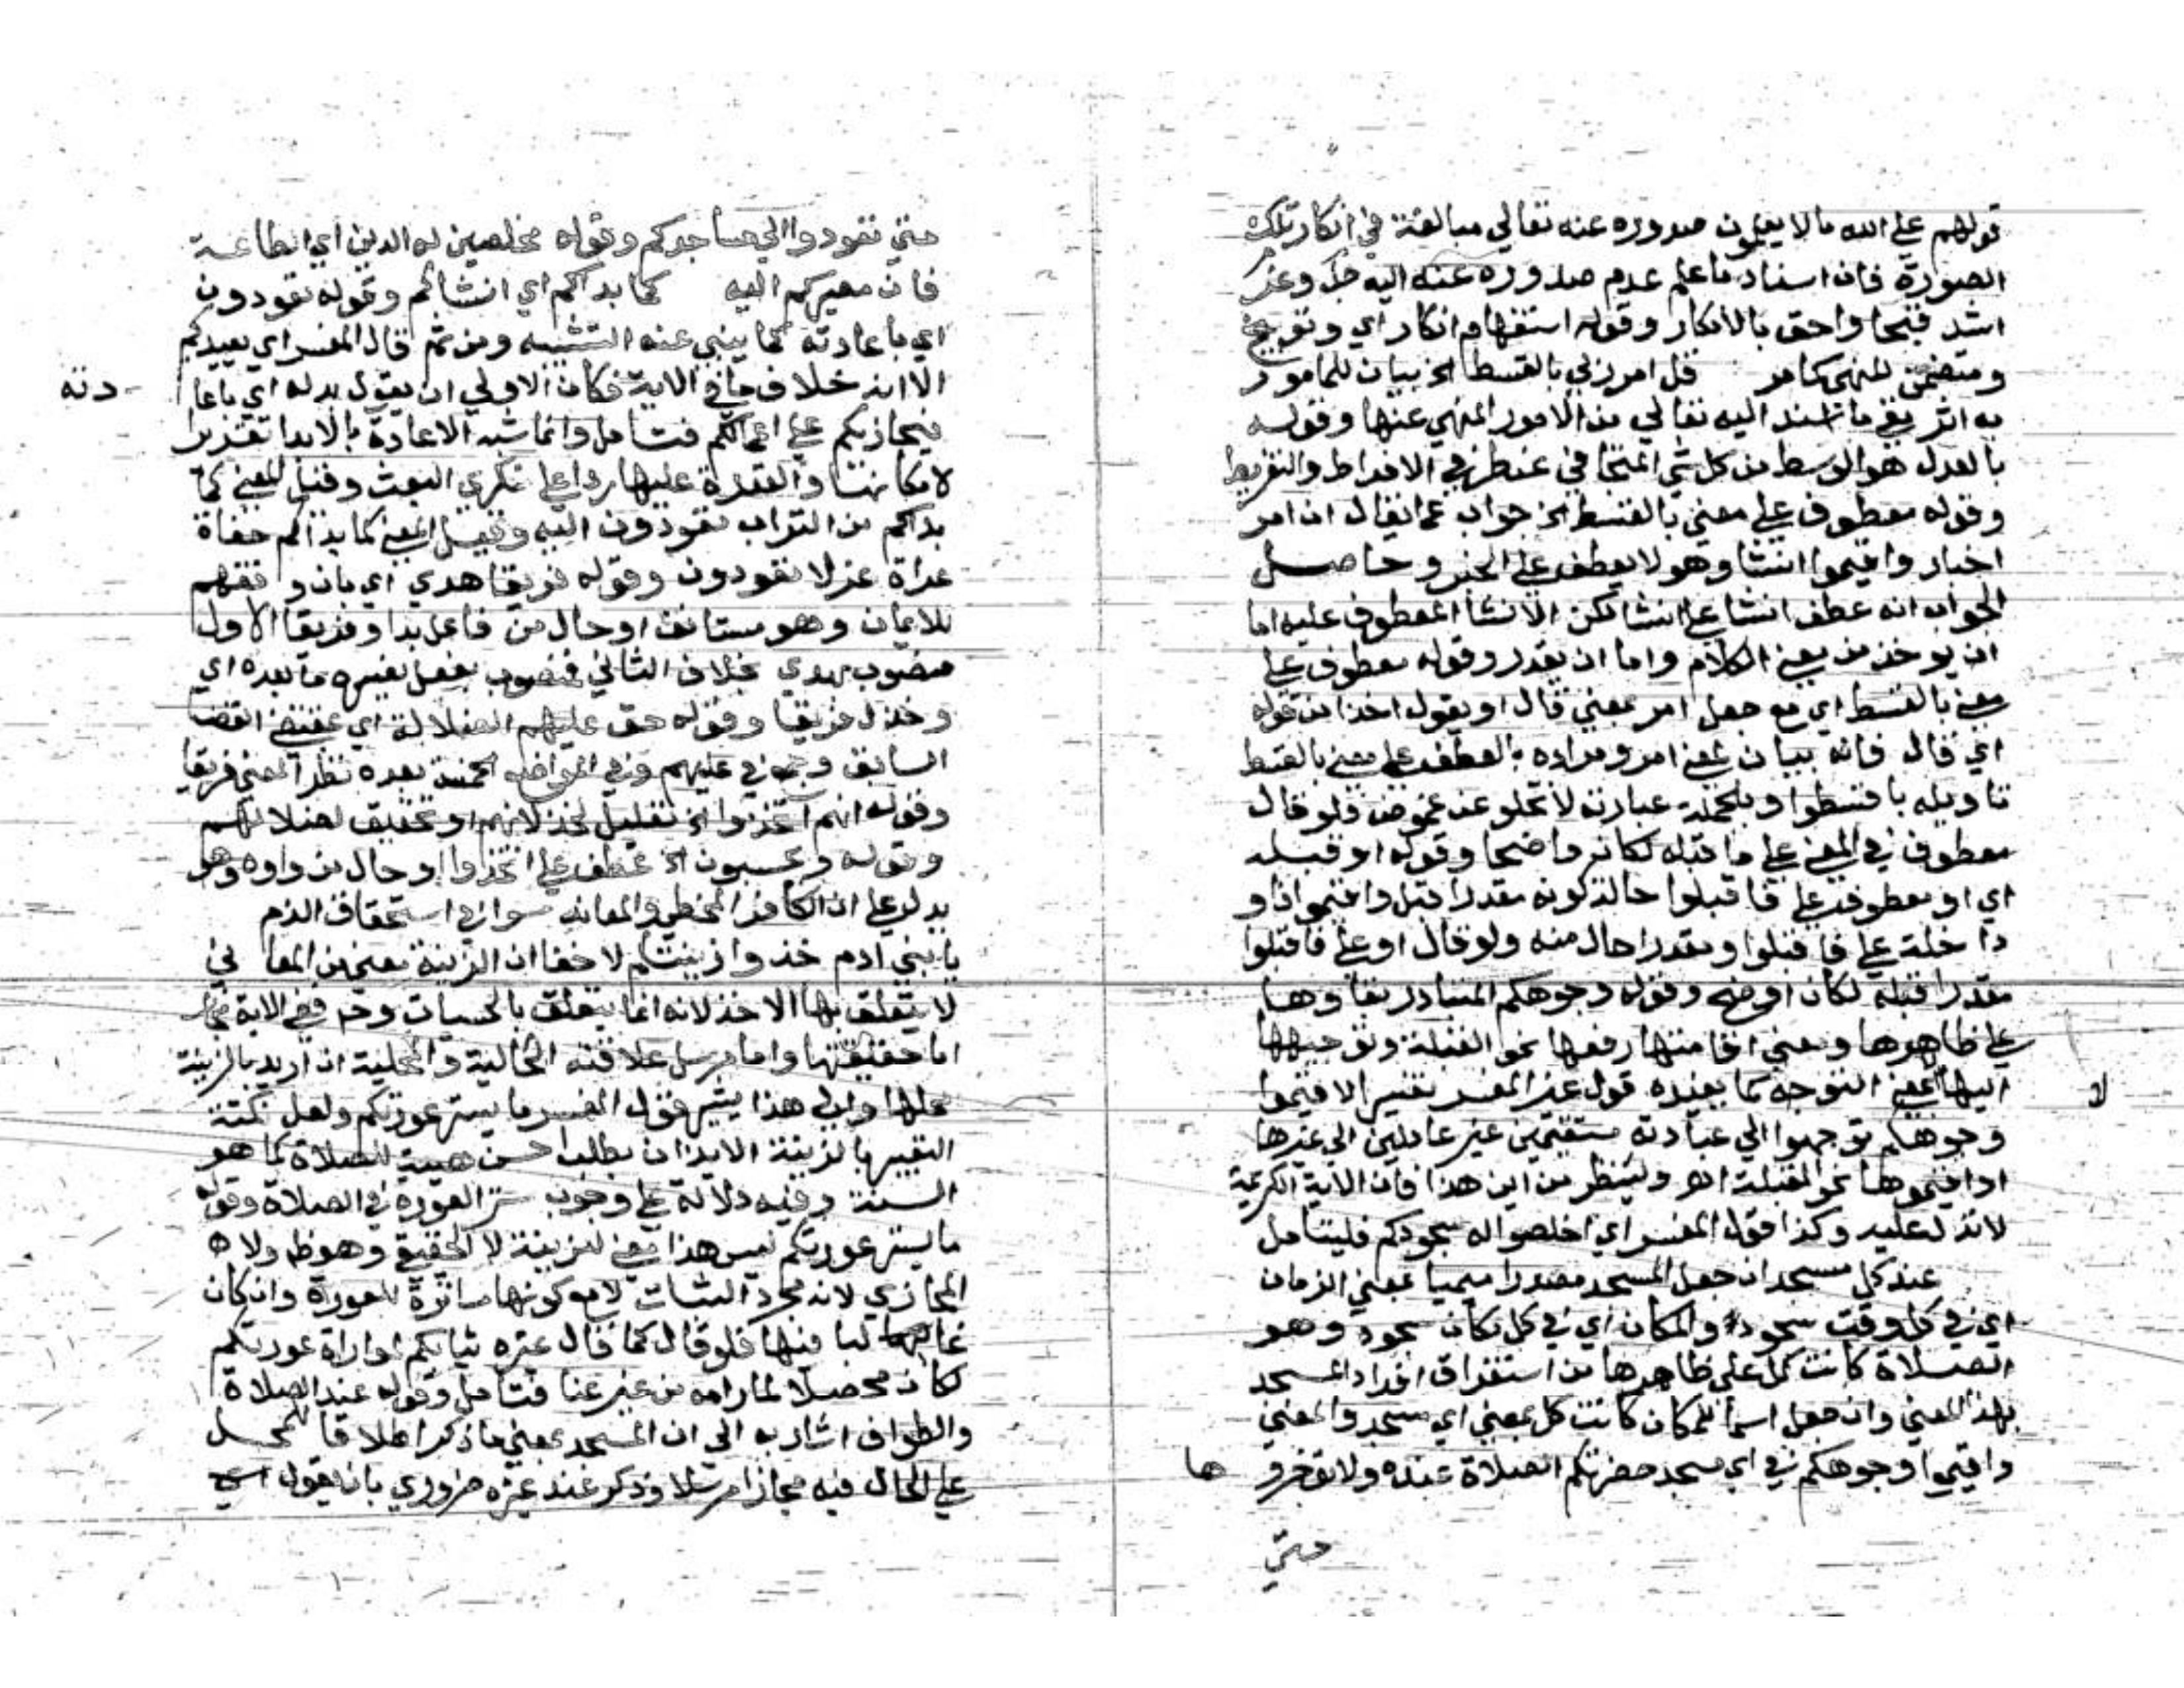 قولهم علي الله مالا يعلمون صدوره عنه تعالي مبالغة في انكار تلك
الصورة فان اسناد ما علم عدم صدوره عنه اليه جل وعز
اشد قبحا واحق بالانكار وقوله استفهام انكار اي وتوبيخ
ومتضمن للنهي كما مر قل امر ربي بالقسط الخ بيان للمامور
به اثر نفي ما اسند اليه تعالي من الامور المنهي عنها وقوله
بالعدل هو الوسط من كل شي المتجافي عن طرفي الافراط والتفريط
وقوله معطوف علي معني بالقسط الخ جواب عما يقال ان امر
اخبار واقيموا انشا وهو لا يعطف علي الخبر وحاصل
الجواب انه عطف انشا علي انشا لكن الانشا المعطوف عليه اما
ان يوخذ من معني الكلام واما ان يقدر وقوله معطوف علي
معني بالقسط اي مع جعل امر بمعني قال او يقول اخذا من قوله
اي قال فانه بيان لمعني امر ومراده بالعطف علي معني بالقسط
تاويله باقسطوا وبالجملة عبارته لا تخلو عن غموض فلو قال
معطوف في المعني علي ما قبله لكان واضحا وقوله او قبله
اي او معطوف علي فاقبلوا حالة كونه مقدرا قبل واقيموا فاو
داخلة علي فاقبلوا ومقدرا حال منه ولو قال او علي فاقبلوا
مقدرا قبله لكان اوضح وقوله وجوهكم المتبادر بقاوها
علي ظاهرها ومعني اقامتها رفعها نحو القبلة وتوجيهها
اليها بمعني التوجه كما يفيده قول غير المفسر تفسير الاقيموا
لا
وجوهكم توجهوا الي عبادته مستقيمين غير عادلين الي غيرها
او اقيموها نحو القبلة اهـ ولينظر من اين هذا فان الاية الكريمة
لا تدل عليه وكذا قول المفسر اي اخلصوا له سجودكم فليتامل
عند كل مسجد ان جعل المسجد مصدرا ميميا بمعني الزمان
اي في كل وقت سجود او المكان اي في كل مكان سجود وهو
الصلاة كانت كل علي ظاهرها من استغراق افراد المسجد
بهذا المعني وان جعل اسما للمكان كانت كل بمعني اي مسجد والمعني
واقيموا وجوهكم في اي مسجد حضرتكم الصلاة عنده ولا توخرو
ها
حتي
حتي تعودوا الي مساجدكم وقوله مخلصين له الدين اي الطاعة
فان مصيركم اليه كما بداكم اي انشاكم وقوله تعودون
اي باعادته كما ينبي عنه التشبيه ومن ثم قال المفسر اي يعيدكم
الا انه خلاف ما في الاية فكان الاولي ان يقول بدله اي باعا
دته
فيجازيكم علي اعمالكم فتامل وانما شبه الاعادة بالابدا تقريرا
لامكانها والقدرة عليها ردا علي منكري البعث وقيل المعني كما
بداكم من التراب تعودون اليه وقيل المعني كما بداكم حفاة
عراة غرلا تعودون وقوله فريقا هدي اي بان وفقهم
للايمان وهو مستانف او حال من فاعل بدا وفريقا الاول
منصوب بهدي بخلاف الثاني فمنصوب بفعل يفسره ما بعده اي
وخذل فريقا وقوله حق عليهم الضلالة اي بمقتضي القضا
السابق وجمع في عليهم وفي المواضع الخمسة بعده نظرا لمعني فريقا
وقوله انهم اتخذوا الخ تعليل لخذلانهم او تحقيق لضلالهم
وقوله ويحسبون الخ عطف علي اتخذوا او حال من واوه وهو
يدل علي ان الكافر المخطي والمعاند سوا في استحقاق الذم
يا بني ادم خذوا زينتكم لا خفا ان الزينة معني من المعاني
لا يتعلق بها الاخذ لانه انما يتعلق بالحسيات وح ففي الاية مجاز
اما حقيقتها واما مرسل علاقته الحالية والمحلية ان اريد بالزينة
محلها والي هذا يشير قول المفسر ما يستر عورتكم ولعل نكتة
التعبير بالزينة الايذان بطلب احسن هيية للصلاة كما هو
السنة وفيه دلالة علي وجوب ستر العورة في الصلاة وقوله
ما يستر عورتكم ليس هذا معني الزينة لا الحقيقي وهو ظ ولا
المجازي لانه مجرد الثياب لا مع كونها ساترة للعورة وان كان
غالبها لبا فيها فلو قال كما قال غيره ثيابكم لمواراة عورتكم
لكان محصلا لمارامه من غير عنا فتامل وقوله عند الصلاة
والطواف اشار به الي ان المسجد بمعني ما ذكر اطلاقا للمحل
علي الحال فيه مجازا مرسلا وذكر عند غيره ضروري بان يقول اي